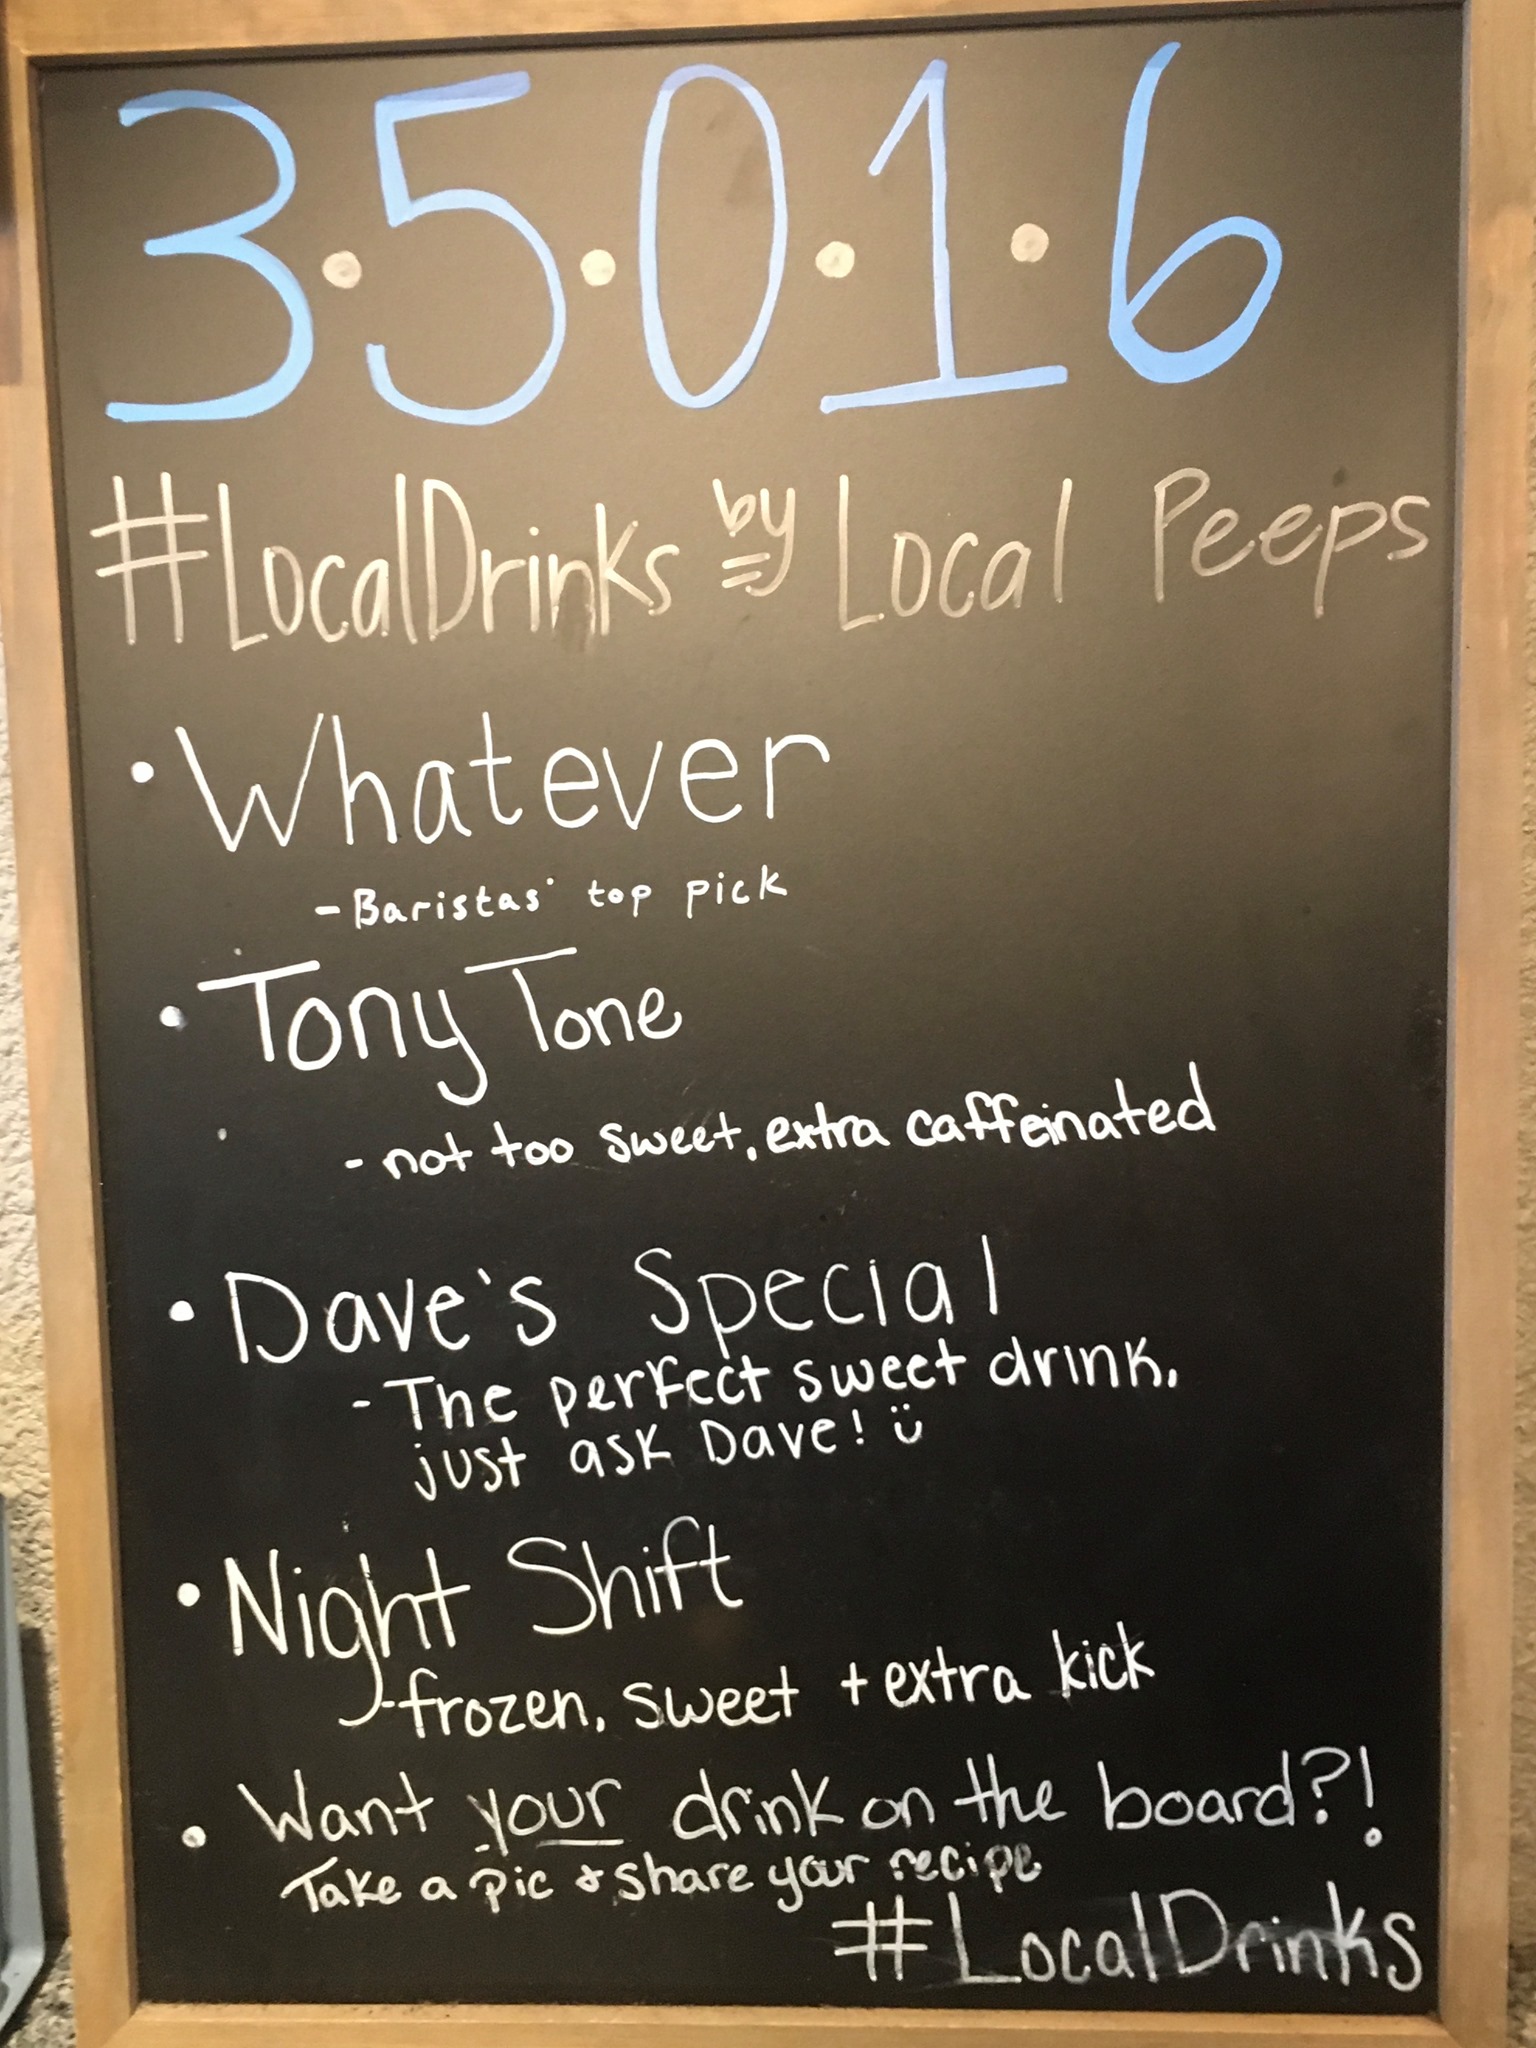 3·5·0·1·6
#LocalDrinks by Local Peeps
• Whatever
- Baristas' top pick
• Tony Tone
- not too sweet, extra caffeinated
• Dave's Special
- The perfect sweet drink,
just ask Dave! ü
• Night Shift
- frozen, sweet + extra kick
• Want your drink on the board?!
Take a pic & share your recipe
#LocalDrinks